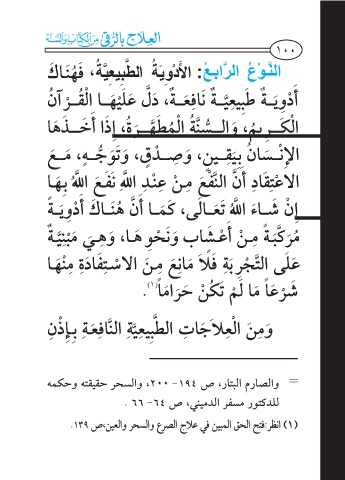 العِلاج بالرُّقى مِنَ الكِتَاب وَالسُّنَّة
١٠٠
النَّوْعُ الرَّابِعُ: الأَدْوِيَةُ الطَّبِيعِيَّةُ، فَهُنَاكَ
أَدْوِيَةٌ طَبِيعِيَّةٌ نَافِعَةٌ، دَلَّ عَلَيْهَا الْقُرْآنُ
الْكَرِيمُ، وَالسُّنَّةُ الْمُطَهَّرَةُ، إِذَا أَخَذَهَا
الإِنْسَانُ بِيَقِينٍ، وَصِدْقٍ، وَتَوَجُّهٍ، مَعَ
الاعْتِقَادِ أَنَّ النَّفْعَ مِنْ عِنْدِ اللَّهِ نَفَعَ اللَّهُ بِهَا
إِنْ شَاءَ اللَّهُ تَعَالَى، كَمَا أَنَّ هُنَاكَ أَدْوِيَةً
مُرَكَّبَةً مِنْ أَعْشَابٍ وَنَحْوِهَا، وَهِيَ مَبْنِيَّةٌ
عَلَى التَّجْرِبَةِ فَلاَ مَانِعَ مِنَ الاسْتِفَادَةِ مِنْهَا
شَرْعَاً مَا لَمْ تَكُنْ حَرَامَاً(١).
وَمِنَ الْعِلاَجَاتِ الطَّبِيعِيَّةِ النَّافِعَةِ بِإِذْنِ
= والصارم البتار، ص ١٩٤-٢٠٠، والسحر حقيقته وحكمه
للدكتور مسفر الدميني، ص ٦٤-٦٦ .
(١) انظر:فتح الحق المبين في علاج الصرع والسحر والعين،ص ١٣٩.